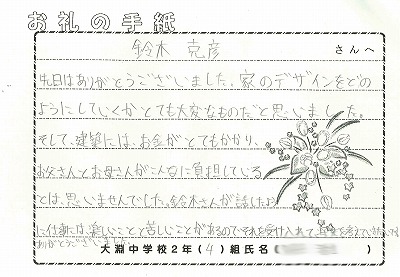 お礼の手紙
鈴木 克彦 さんへ
先日はありがとうございました。家のデザインをどの
ようにしていくかとても大変なものだと思いました。
そして、建築には、お金がとてもかかり、
お父さんとお母さんがこんなに負担している
とは、思いませんでした。鈴木さんが話したよう
に仕事には、楽しいことと苦しいことがあるのでそれを受け入れて、
ありがとうございました
大淵中学校2年(4)組氏名(